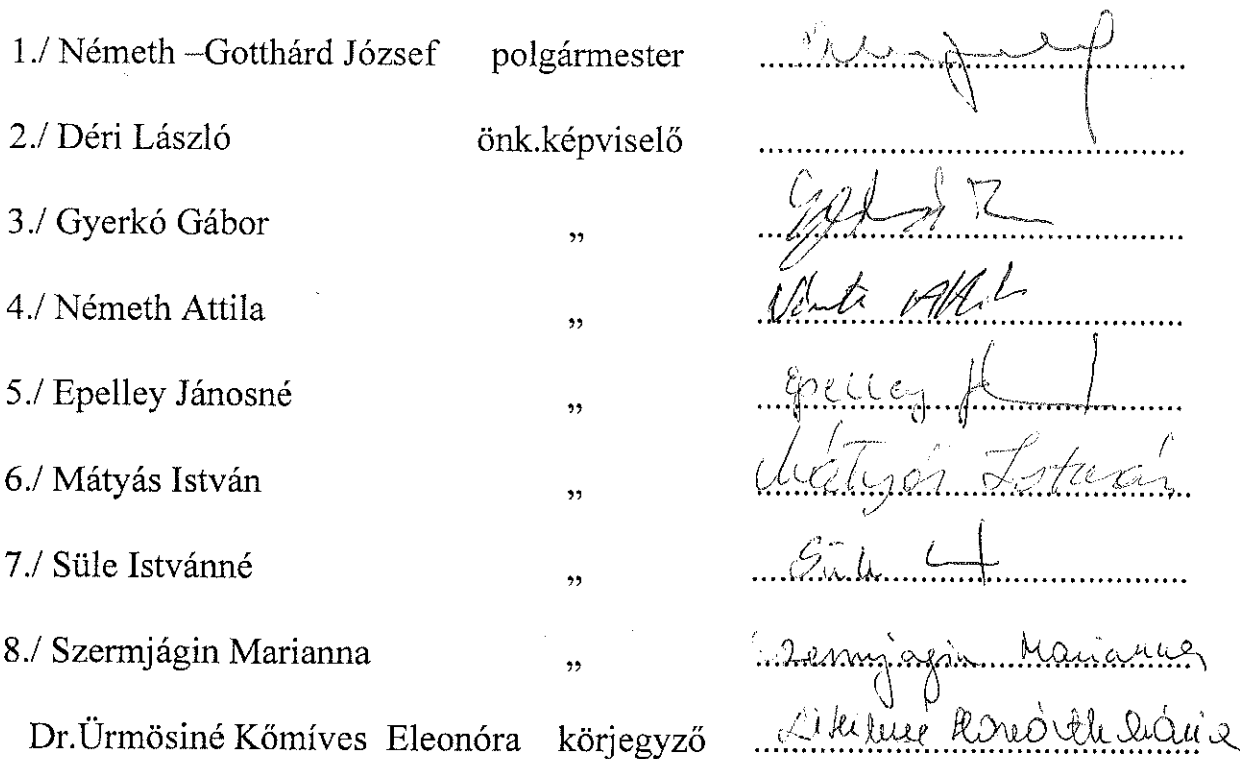 1./ Németh –Gotthárd József polgármester
2./ Déri László önk.képviselő
3./ Gyerkó Gábor „
4./ Németh Attila „ Németh Attila
5./ Epelley Jánosné „ Epelley
6./ Mátyás István „ Mátyás István
7./ Süle Istvánné „ Süle
8./ Szermjágin Marianna „ Szermjagin Marianna
Dr.Ürmösiné Kőmíves Eleonóra körjegyző Horváth Mária